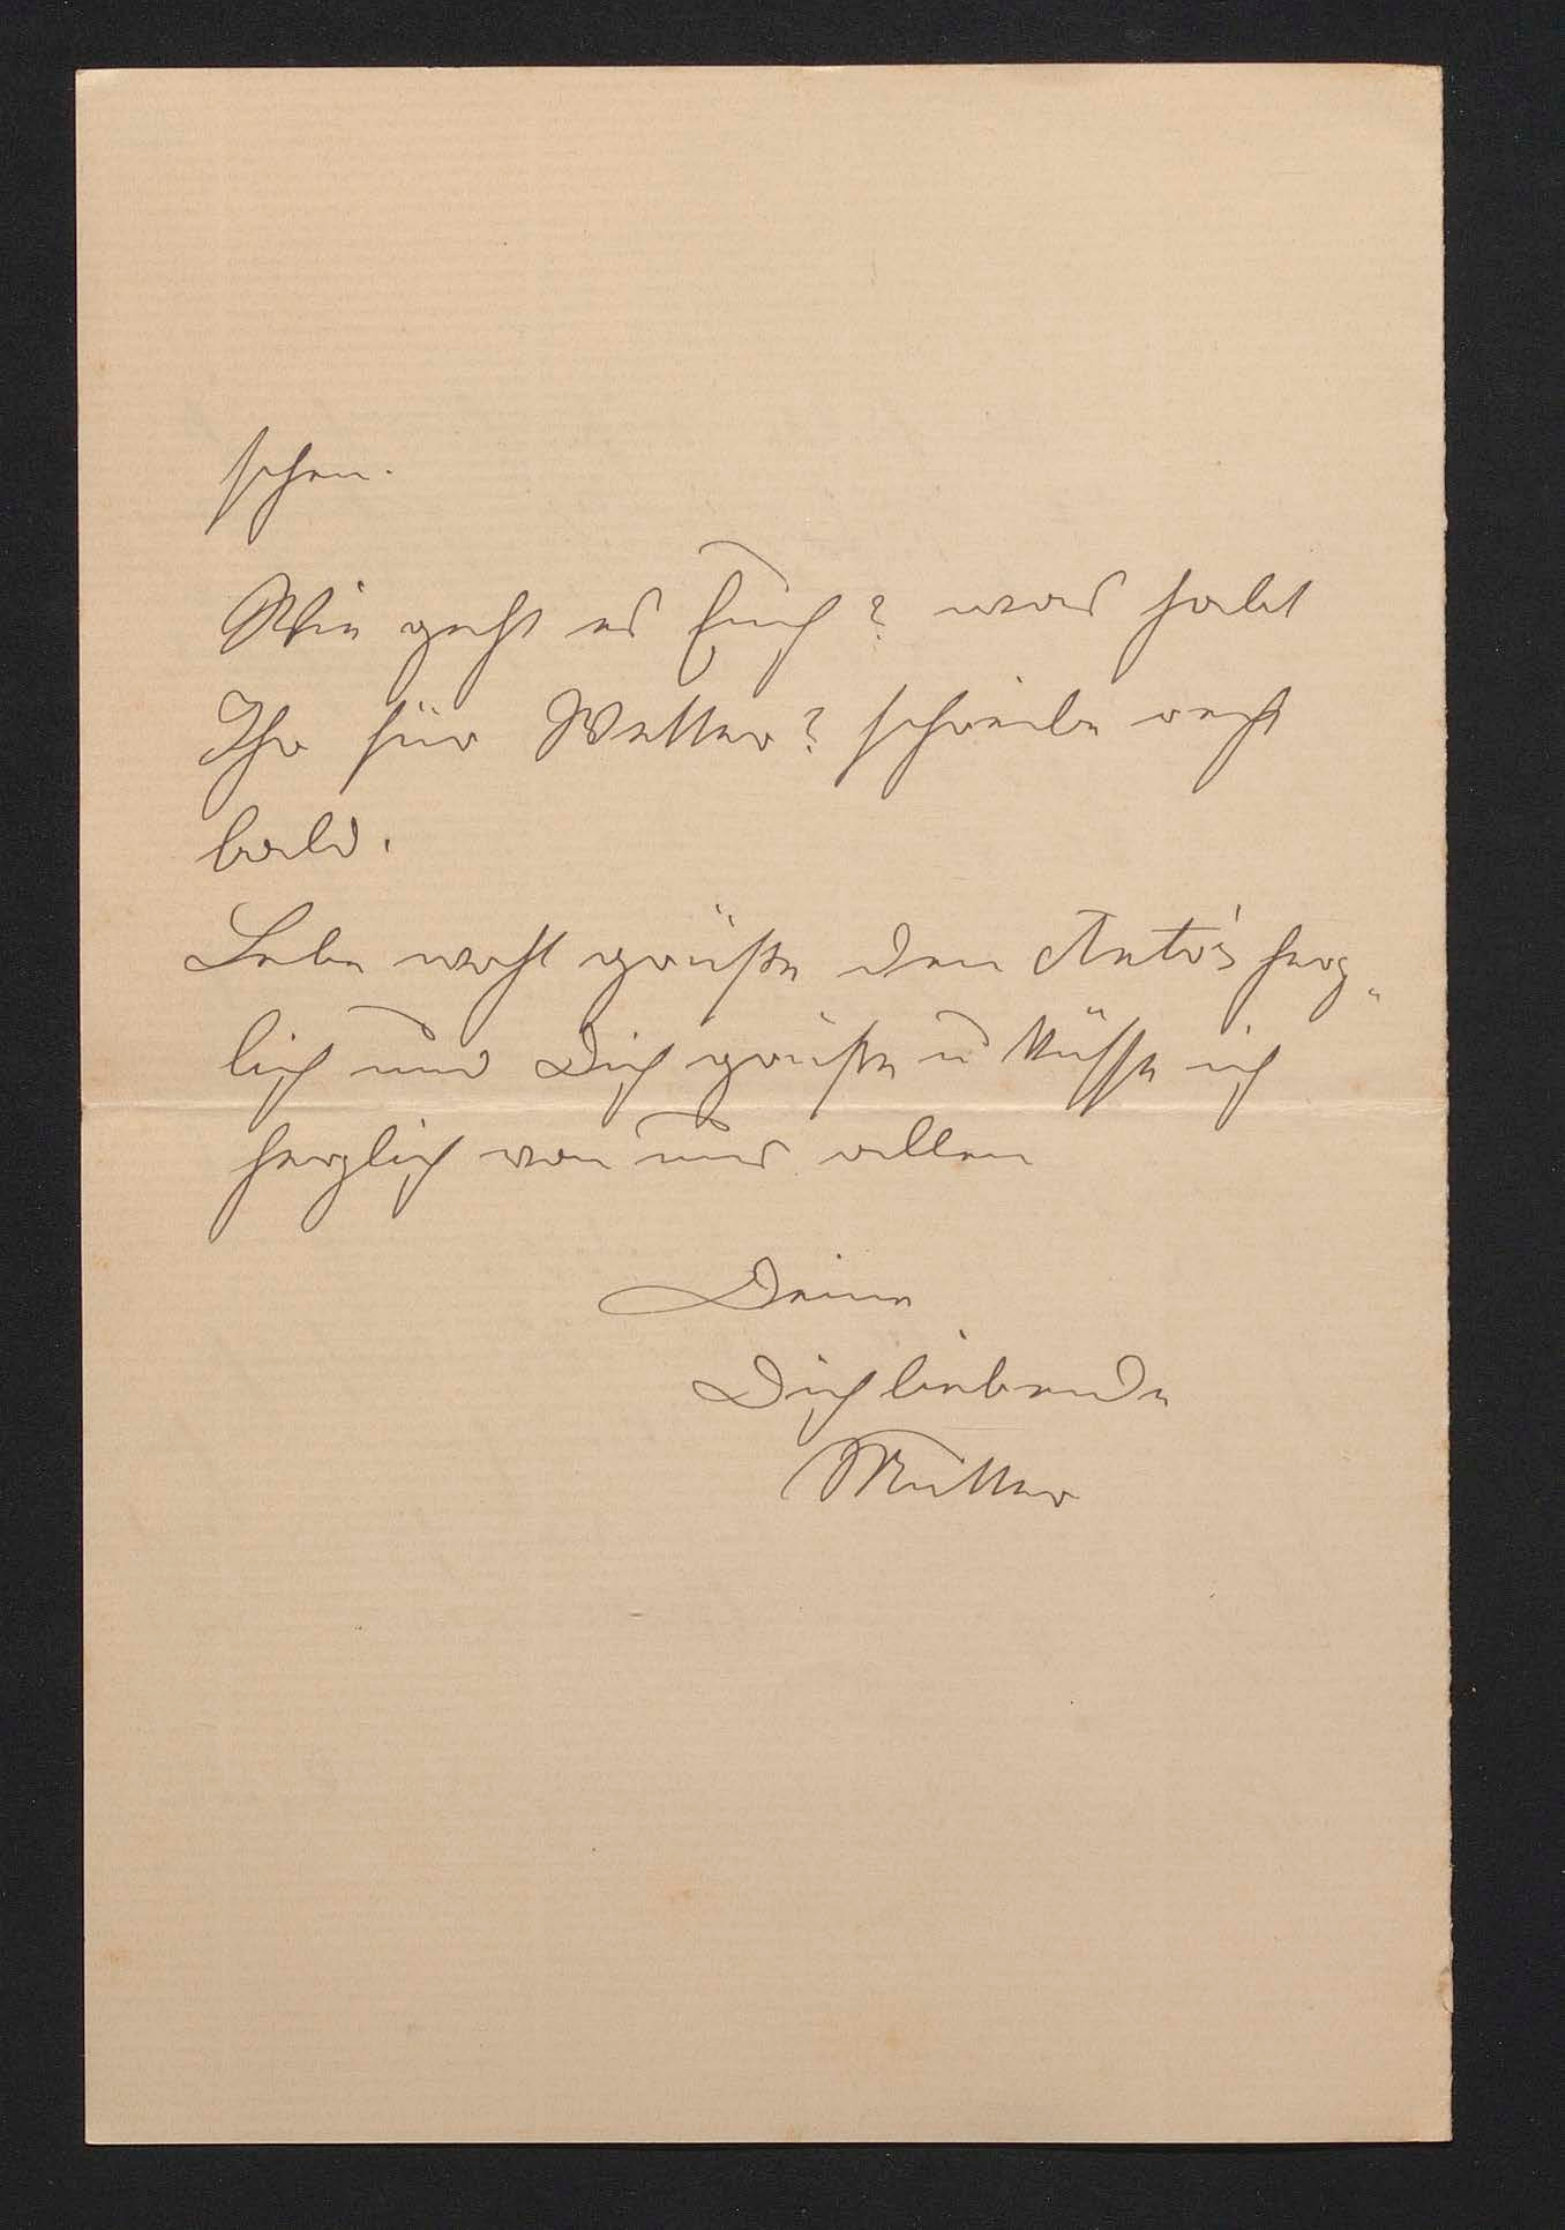 sehen.
Wie geht es Euch? was habt
Ihr für Wetter? schreibe recht
bald.
Lebe wohl grüße den herz„
lich und Dich grüße u küsse ich
herzlich von uns allen
Deine
Dich liebende
Mutter